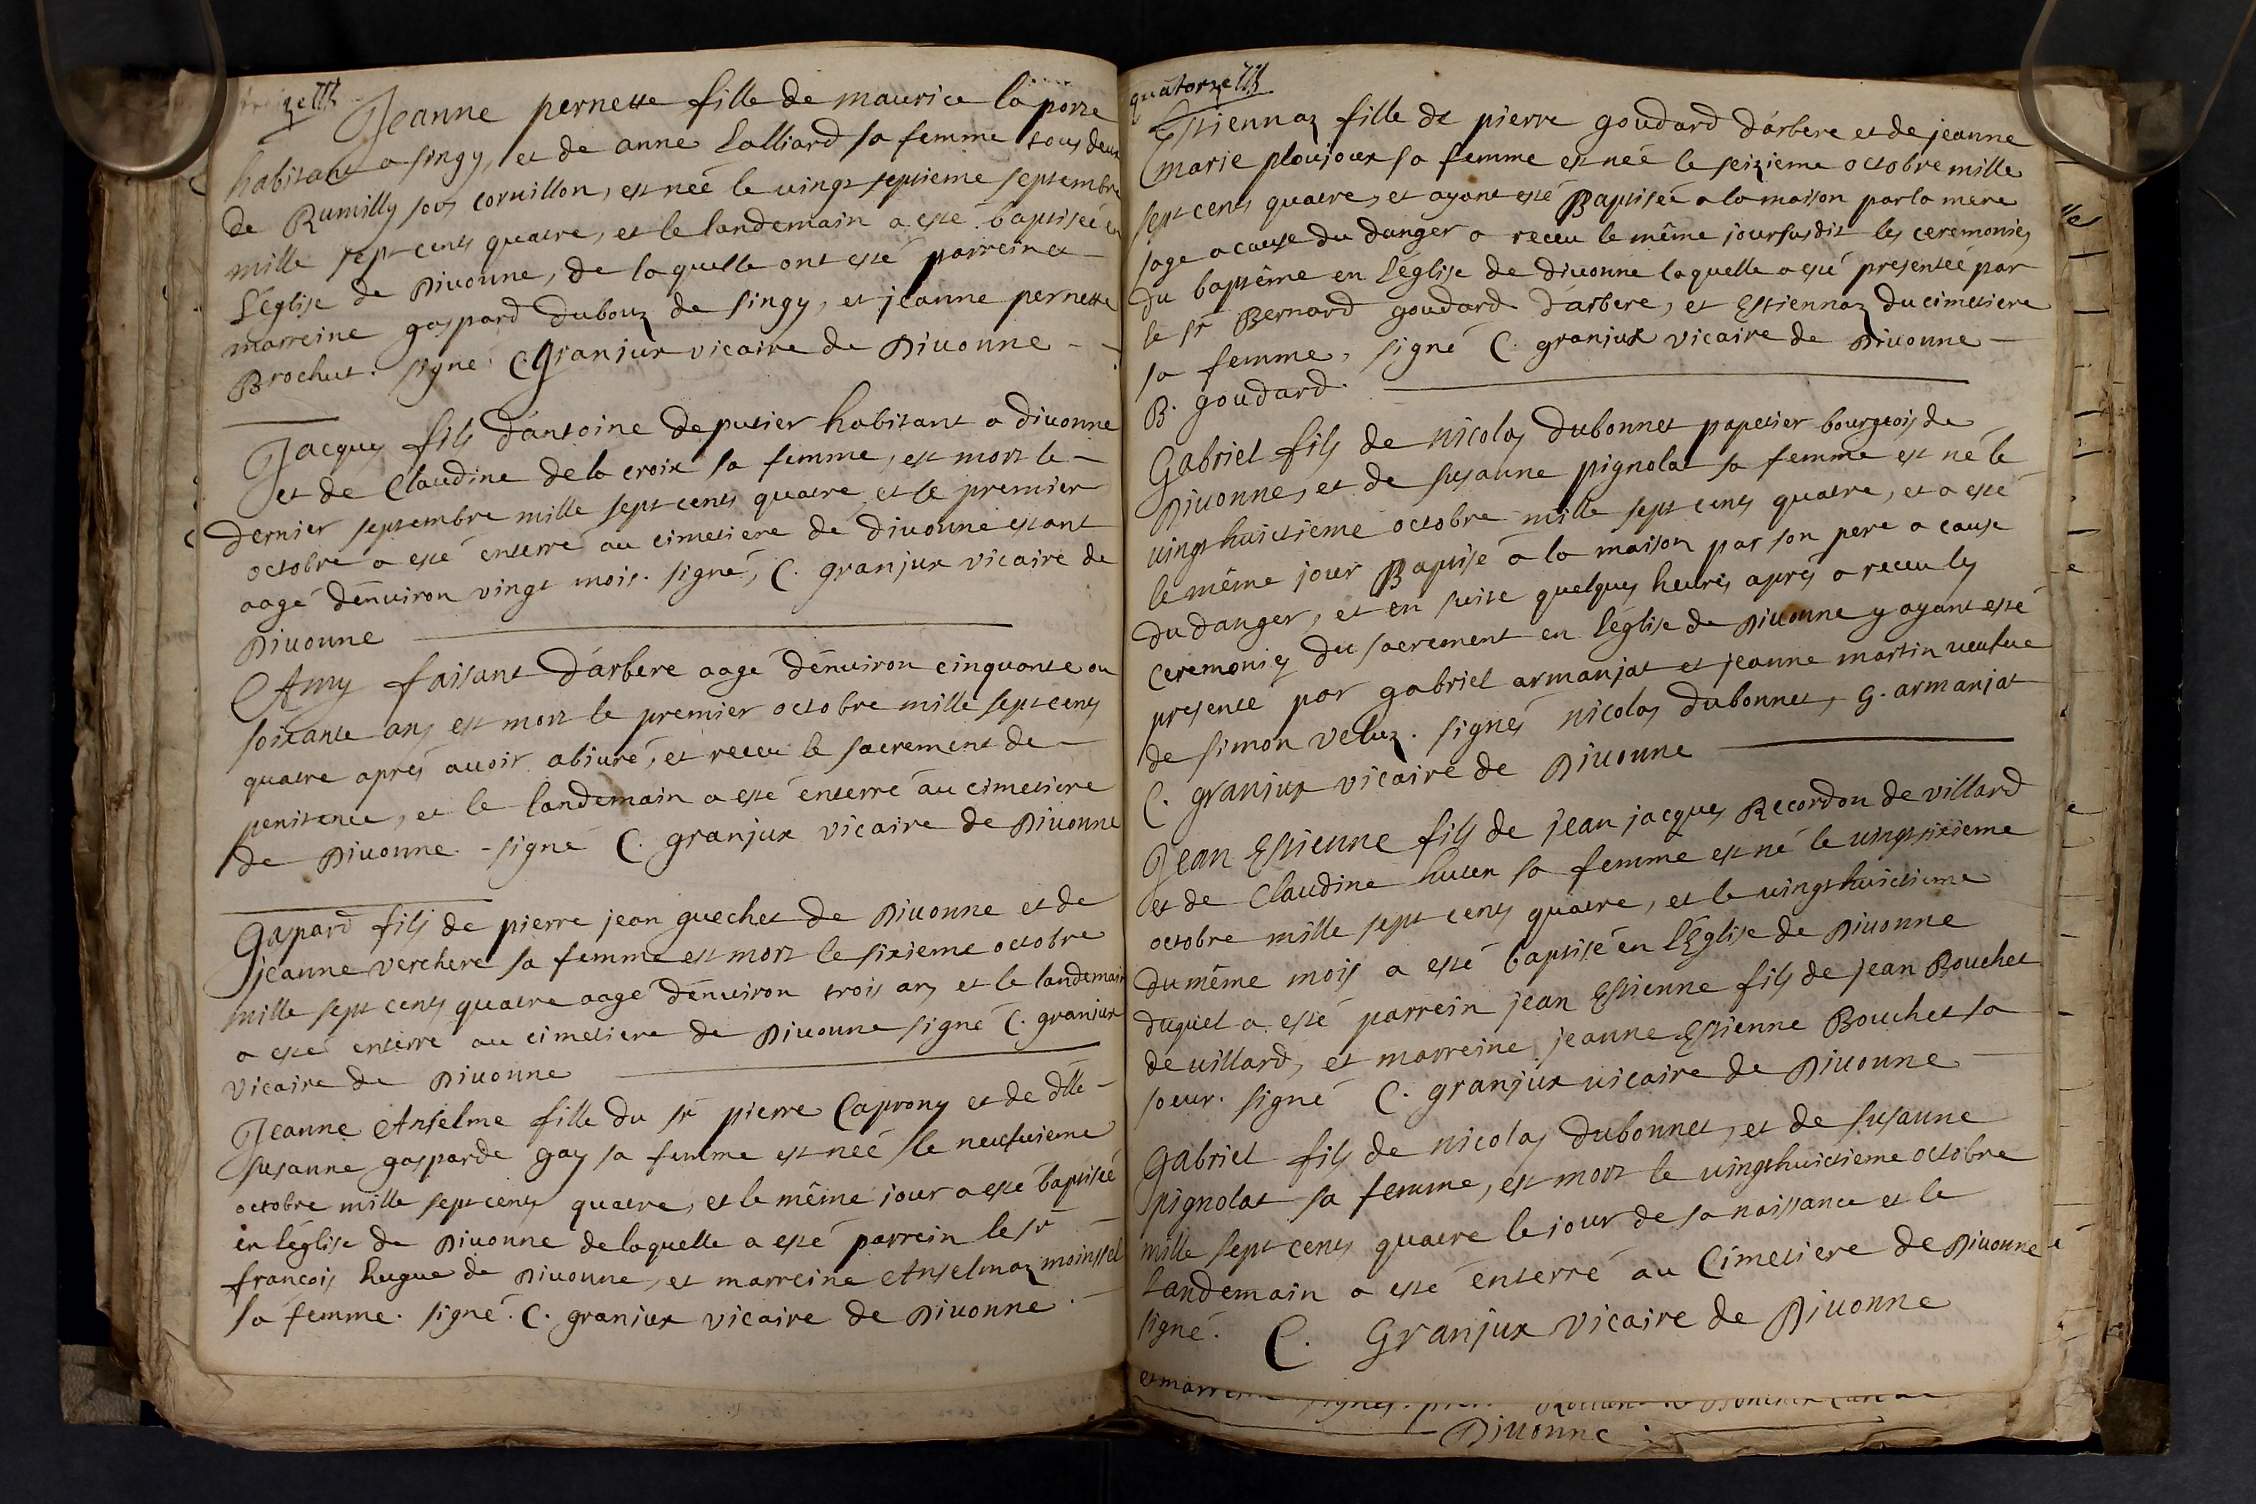 Jeanne pernette fille de maurice la porte
habitant a singy, et de anne Lalliard sa femme tous deux
de Rumilly sous cornillon, est neé le vingt septieme septembre
mille sept cents quatre, et le landemain a esté baptiseé en
L'église de Diuonne, de laquelle ont esté parrein et
marreine gaspard dubouz de singy, et jeanne pernette
Brochut. signé C. Granjux vicaire de Diuonne
Jacques fils d'antoine deputier habitant a diuonne
et de Claudine de la croix sa femme, est mort le
dernier septembre mille sept cents quatre et le premier
octobre a esté enterré au cimetiere de diuonne estant
aagé d'enuiron vingt mois. signé, C. granjux vicaire de
Diuonne
Amy faisant d'arbere aagé d'enuiron cinquante ou
soixante ans est mort le premier octobre mille sept cents
quatre aprés auoir abiuré, et receu le sacrement de
penitence, et le landemain a esté enterré au cimetiere
de Diuonne - signé C. granjux vicaire de Diuonne
Gaspard fils de pierre jean guechet de Diuonne et de
jeanne verchere sa femme est mort le sixieme octobre
mille sept cents quatre aagé d'enuiron trois ans et le landemain
a esté enterré au cimetiere de Diuonne signé C. granjux
vicaire de Diuonne
Jeanne Anselme fille du sr pierre Caprony et de dlle
susanne gasparde gay sa femme est neé le neufuieme
octobre mille sept cents quatre, et le même jour a esté baptiseé
en l'église de Diuonne de laquelle a esté parrein le sr
françois hugue de Diuonne, et marreine Anselmaz
sa femme. signé. C. granjux vicaire de Diuonne.
quatorze
Estiennaz fille de pierre goudard d'arbere et de jeanne
marie ploujoux sa femme est neé le seizieme octobre mille
sept cents quatre, et ayant esté Baptiseé a la maison par la mere
sage a cause du danger a receu le même jour susdit les ceremonies
du baptême en L'église de diuonne laquelle a esté presenteé par
le sr Bernard goudard d'arbere, et Estiennaz ducimetiere
sa femme, signé C. granjux vicaire de Diuonne
B. goudard.
Gabriel fils de nicolas dubonnet papetier bourgeois de
Diuonne, et de susanne pignolat sa femme est né le
vingthuictieme octobre mille sept cents quatre, et a esté
le même jour Baptisé a la maison par son pere a cause
du danger, et en suite quelques heures aprés a receu les
ceremonies du sacrement en L'église de Diuonne y ayant esté
presenté par gabriel armanjat et jeanne martin veufue
de simon veluz. signés nicolas dubonnet, G. armanjat
C. granjux vicaire de Diuonne
Jean Estienne fils de jean jacques Recordon de villard
et de Claudine huten sa femme est né le vingtsixieme
octobre mille sept cents quatre, et le vingthuictieme
du même mois a esté baptisé en L'Eglise de Diuonne
duquel a esté parrein jean Estienne fils de jean Bouchet
de villard, et marreine jeanne Estienne Bouchet sa
soeur. signé C. granjux vicaire de Diuonne
Gabriel fils de nicolas dubonnet, et de susanne
pignolat sa femme, est mort le vingthuictieme octobre
mille sept cents quatre le jour de sa naissance et le
landemain a esté enterré au Cimetiere de Diuonne
signé. C. Granjux vicaire de Diuonne
Diuonne